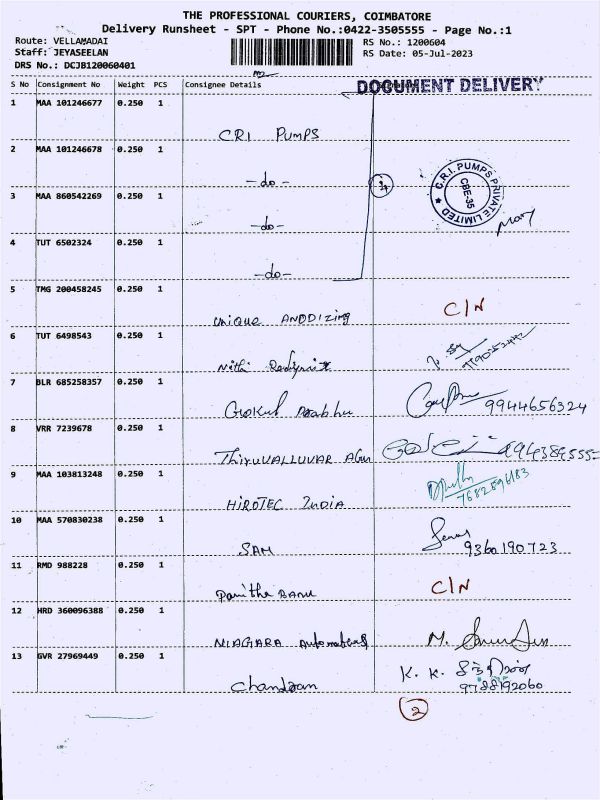 THE PROFESSIONAL COURIERS, COIMBATORE
Delivery Runsheet - SPT - Phone No.:0422-3505555 - Page No.:1
Route: VELLAMADAI RS No.: 1200604
Staff: JEYASEELAN RS Date: 05-Jul-2023
DRS No.: DCJB120060401
DOCUMENT DELIVERY
S No Consignment No Weight PCS Consignee Details
1 MAA 101246677 0.250 1
CRI PUMPS
2 MAA 101246678 0.250 1
-do-
C.R.I. PUMPS PRIVATE LIMITED
CBE-35
3 MAA 860542269 0.250 1
-do-
4 TUT 6502324 0.250 1
-do-
5 TMG 200458245 0.250 1
unique ANODIZING C/N
6 TUT 6498543 0.250 1
Nithi
7 BLR 685258357 0.250 1
Gokul Prabhu 9944656324
8 VRR 7239678 0.250 1
Thiruvalluvar
9 MAA 103813248 0.250 1
HIROTEC India
10 MAA 570830238 0.250 1
SAM 9360190723
11 RMD 988228 0.250 1
Panitha BANU C/N
12 HRD 360096388 0.250 1
NIAGARA Automations M.
13 GVR 27969449 0.250 1
Chandran K. K.
9788192060
2